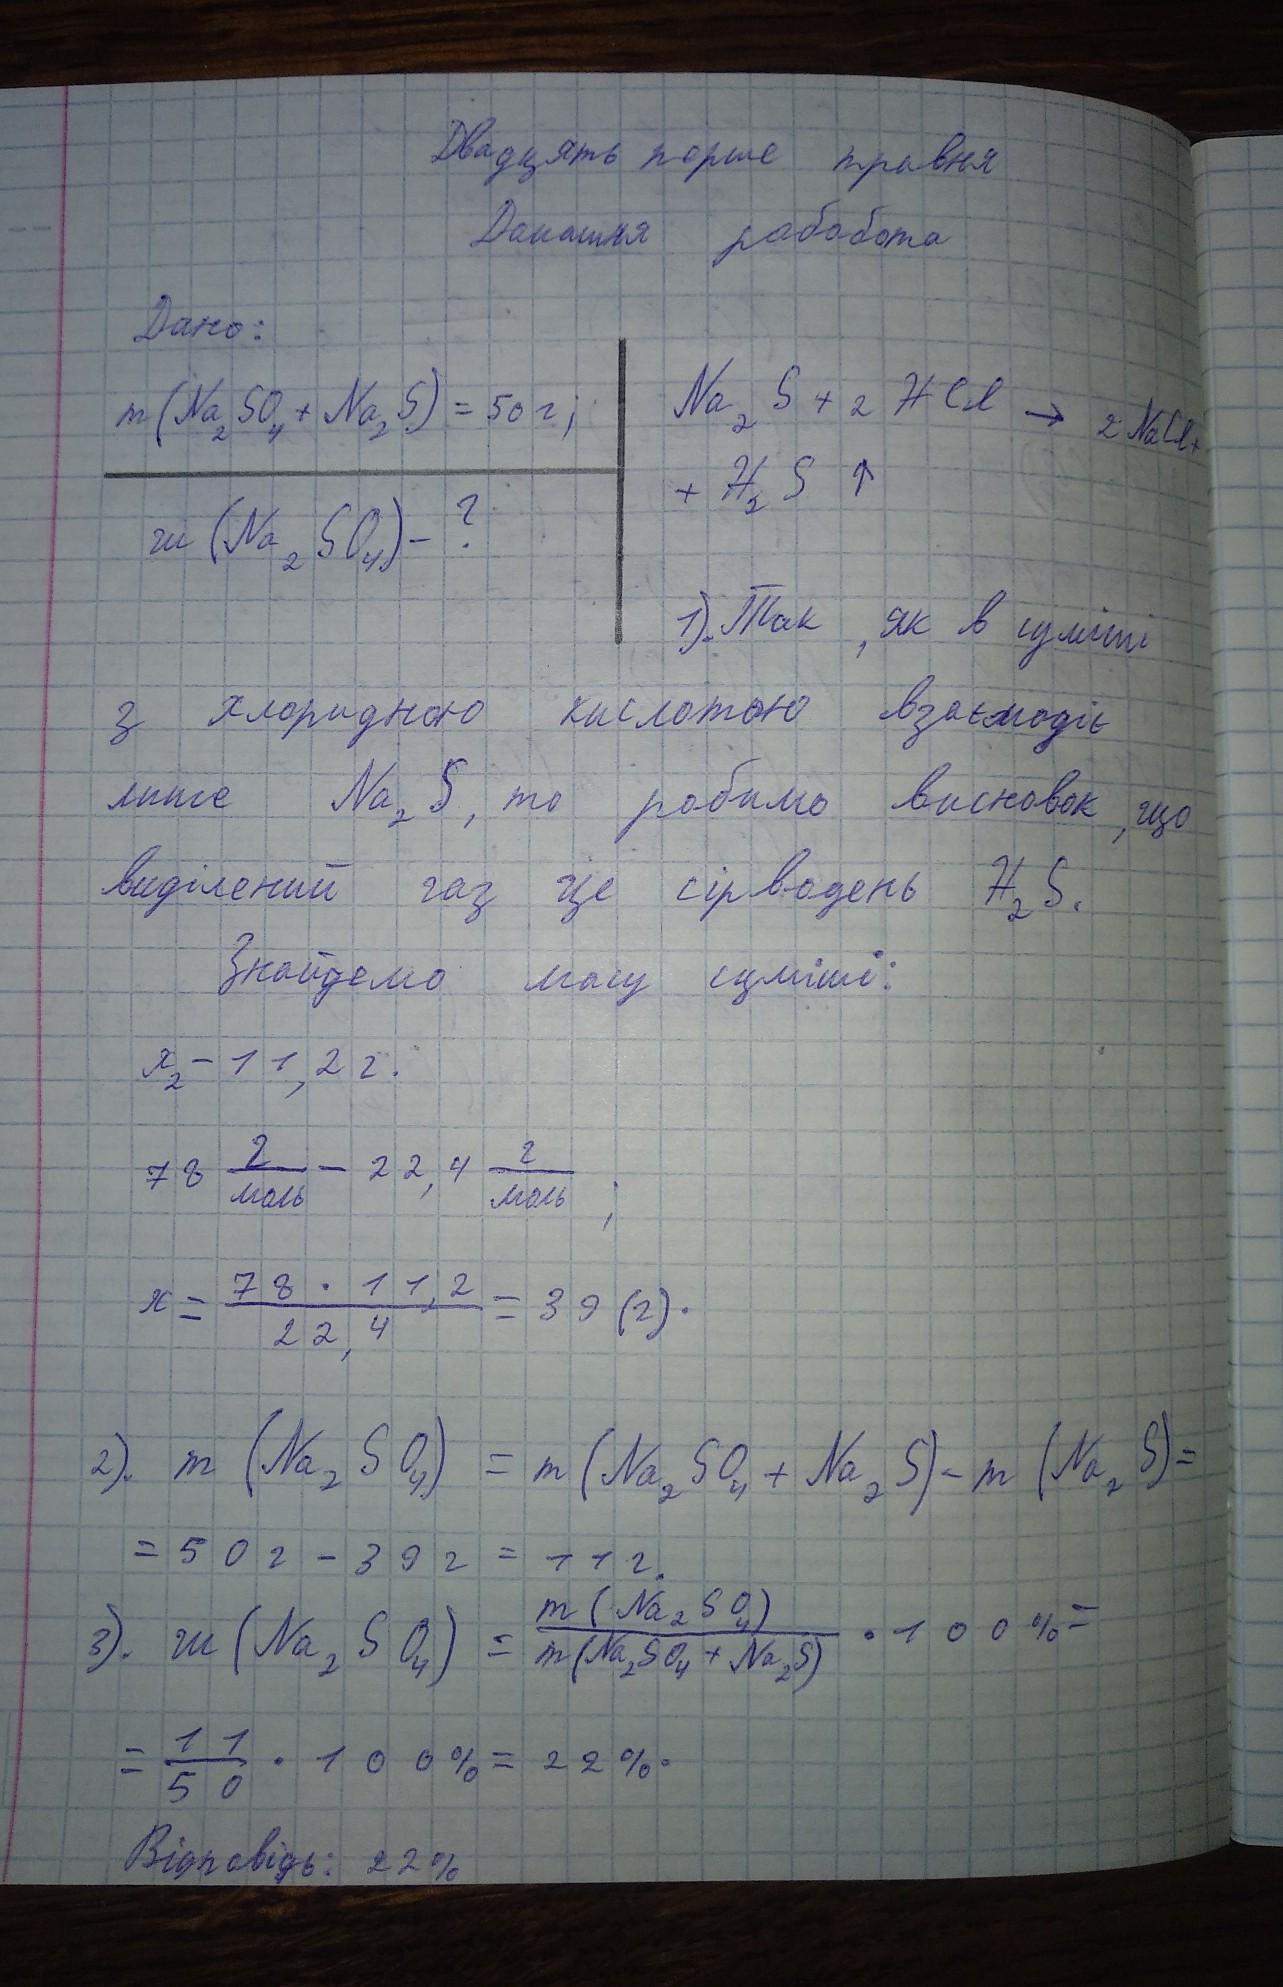 Двадцять перше травня
Домашня рабобота
Дано:
m(Na₂SO₄ + Na₂S) = 50 г;
ш (Na₂SO₄) - ?
Na₂S + 2 HCl → 2 NaCl +
+ H₂S ↑
1). Так, як в суміші
з хлоридною кислотою взаємодіє
лише Na₂S, то робимо висновок, що
виділений газ це сірводень H₂S.
Знайдемо масу суміші:
x₂ - 11,2 г.
78 г/моль - 22,4 г/моль;
x = 78 · 11,2 / 22,4 = 39 (г).
2). m (Na₂SO₄) = m (Na₂SO₄ + Na₂S) - m (Na₂S) =
= 50 г - 39 г = 11 г.
3). ш (Na₂SO₄) = m (Na₂SO₄) / m(Na₂SO₄ + Na₂S) · 100% =
= 11/50 · 100% = 22%.
Відповідь: 22%